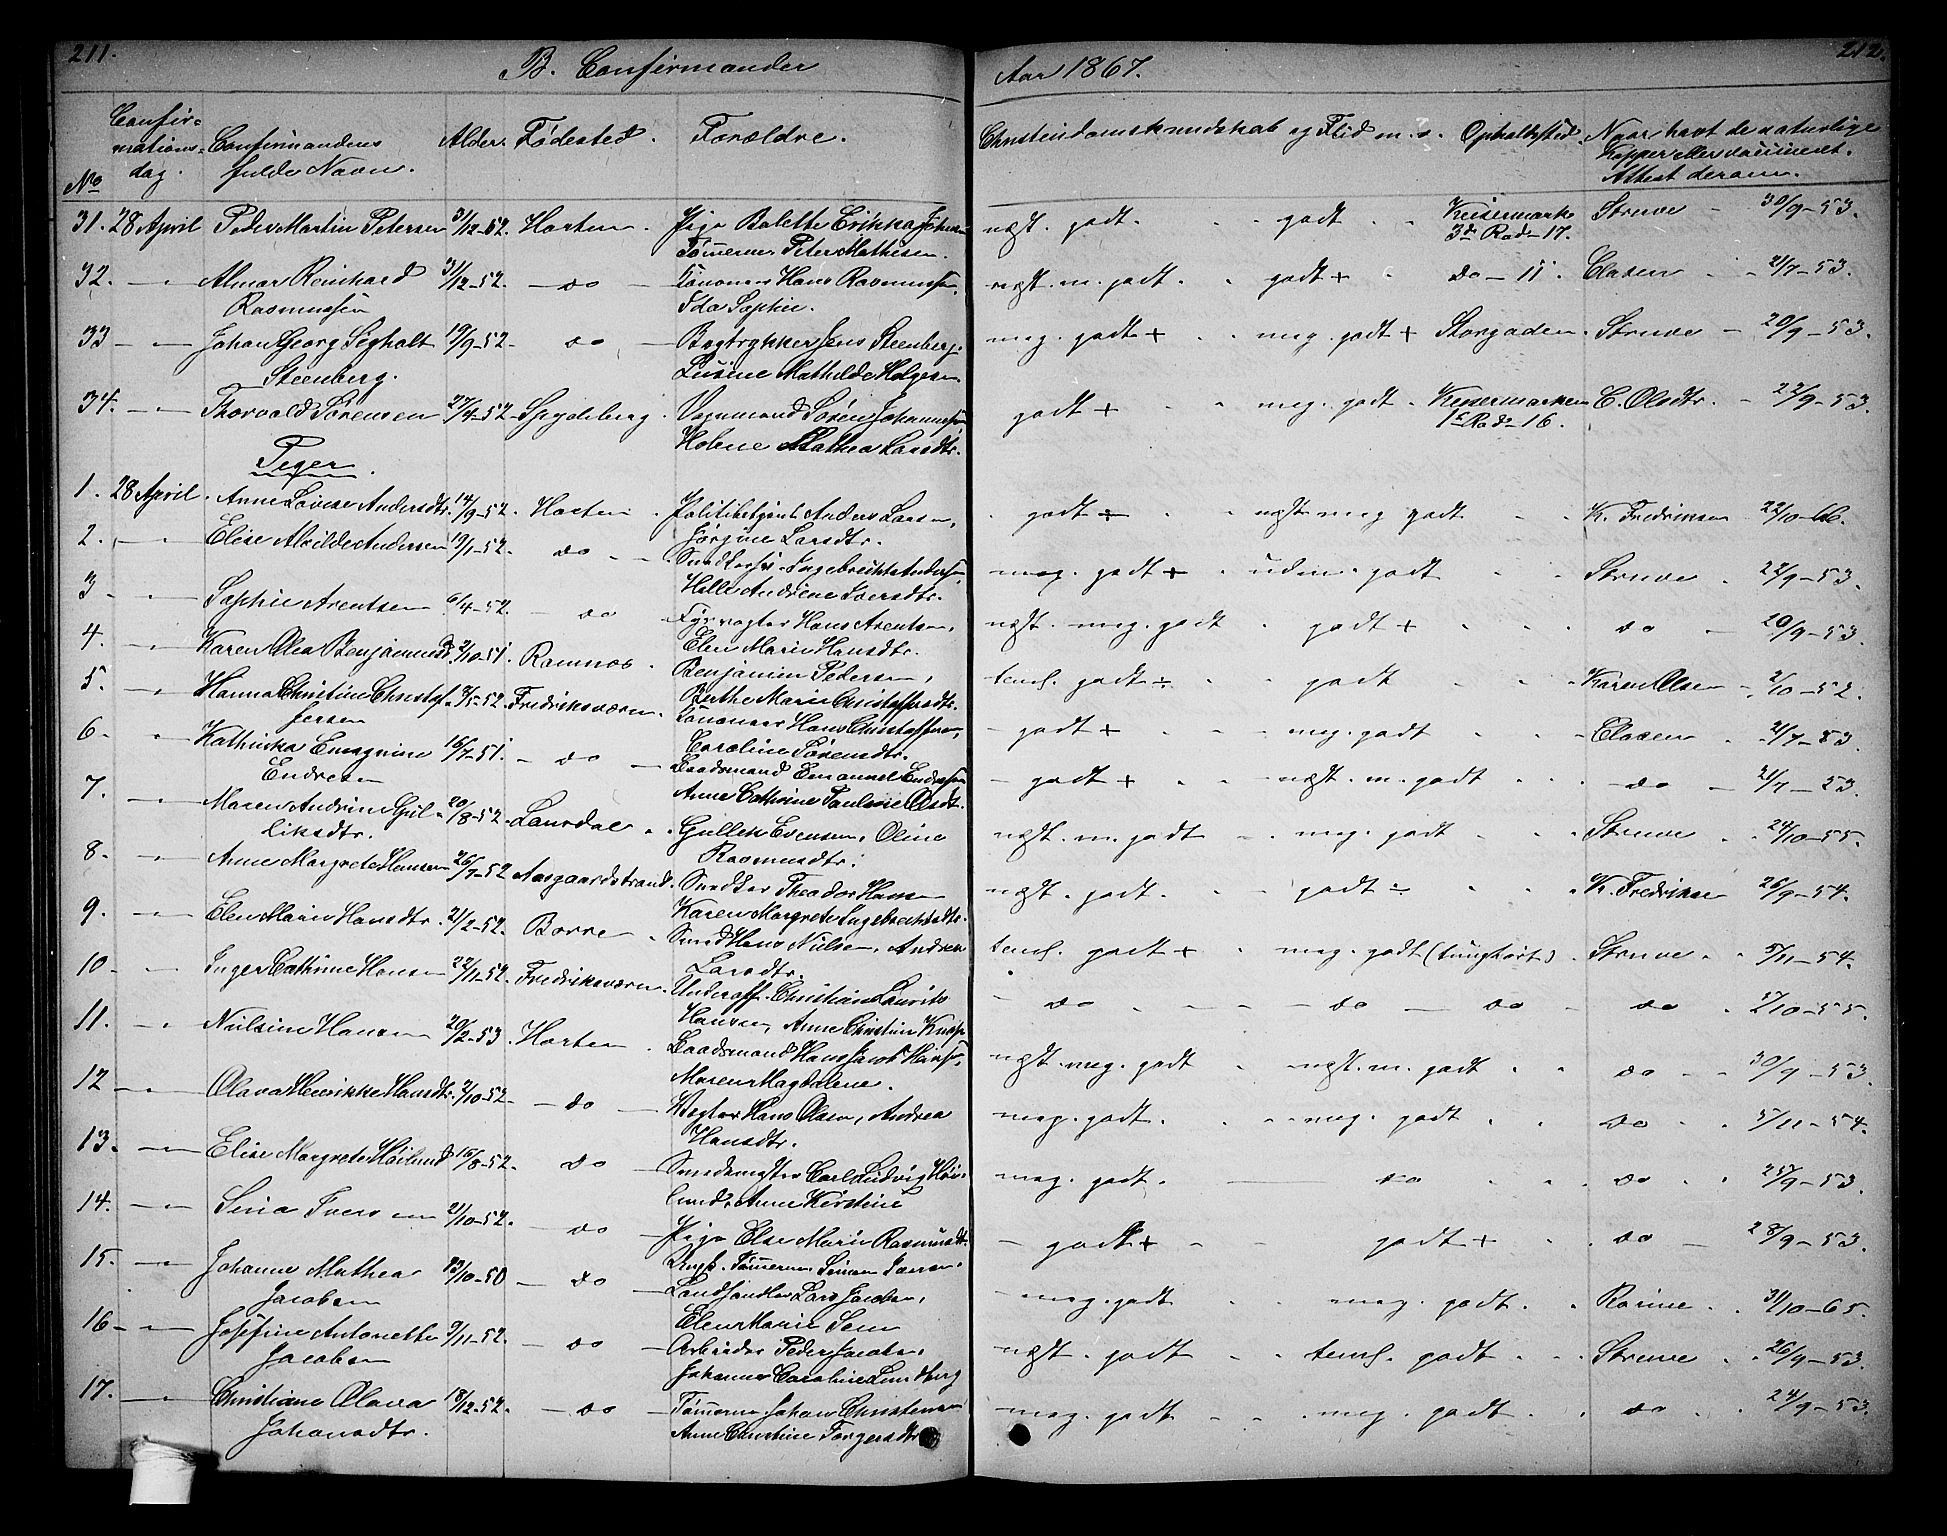 211.
B. Confirmander
Aar 1867.
212.
No
Confirmationsdag.
Confirmandens fulde Navn.
Alder.
Fødested.
Forældre.
Christendomskundskab og Flid m. v.
Opholdssted.
Naar havt de naturlige Kopper eller vaccineret. Attest derom.
31. 28 April Peder Martin Petersen 31/12-52. Horten Pige Bolette Erikka Johansen Tømmermd. Peter Mathisen. næst. godt godt Keisermarken 3de Rode 17. Struve 30/9-53.
32. Almar Reinhard Rasmussen 31/12-52. do Kanoneer Hans Rasmussen, Ida Sophie. næst. m. godt. godt + do - 11. Clasen 21/7-53.
33 Johan Georg Segholt Steenberg. 19/9-52. do Bogtrykker Jens Steenberg, Lusine Mathilde Holgersen. meg. godt + meg. godt + Storgaden. Struve 20/9-53.
34. Thorvald Sørensen 27/4-52. Spydeberg. Vognmand Søren Johannessen Helene Mathea Larsdtr. godt + meg. godt Keisermarken 1e Rode 16. C. Olsdtr. 22/9-53.
Piger
1. 28 April. Anne Lovise Andersdtr. 14/9-52. Horten Politibetjent Anders Larsen, Jørgine Larsdtr. godt næst meg godt K. Fredriksen 22/10-66.
2. Elise Alvilde Andersen 19/1-52. do Ingebricht Andersen, Helle Andrine Iversdtr. meg. godt + uden. godt Struve 22/9-53.
3 Sophie Arentsen 6/4-52. do Fyrvogter Hans Arentsen, Elen Marie Hansdtr. næst. meg. godt godt + do 20/9-53.
4. Karen Olea Benjaminsd. 2/10-51. Ramnæs. Benjamin Pedersen, Berthe Marie Christoffersdtr. teml. godt godt Karen Olsen 2/10-52.
5. Hanna Christine Christoffersen 9/5-52. Fredriksværn. Kanoneer Hans Christoffersen, Caroline Sørensdtr. godt + meg. godt Clasen 21/7-53.
6. Kathinka Emagnine Endresen 16/7-51. do Baadsmand Emanuel Endresen Anne Cathrine Pauline Olsdt. godt + næst. m. godt do 21/7-53.
7. Maren Andrine Gulliksdtr. 20/8-52. Løvsdal Gullek Evensen, Oline Rasmusdtr. næst. m. godt meg. godt Struve 24/10-55.
8. Anne Margrete Hansen 26/7-52 Aasgaardstrand. Snedker Theodor Hansen Karen Margrete Ingebrechtsdtr. næst. godt. godt K. Fredriksen 26/9-54.
9. Elen Marie Hansdtr. 21/2-52. Borre Smed Hans Nielsen, Andrea Larsdtr. teml. godt + meg. godt (tunghørt) Struve 5/11-54.
10. Inger Cathrine Hansen 22/11-52. Fredriksværn. Underoff. Christian Laurits Hansen, Anne Christine Knap do do do do 5/10-55.
11. Nielsine Hansen 20/2-53. Horten Baadsmand Hans Jacob Hansen, Maren Magdalene. næst. meg. godt næst. m. godt do 30/9-53.
12 Olava Henrikke Hansdtr. 2/10-52. do Vogter Hans Olsen, Andrea Hansdtr. meg. godt. meg. godt do 5/11-54.
13. Elise Margrete Høilund 16/8-52. do Smedemester Carl Ludvig Høilund, Anne Kirstine meg. godt. do do 25/9-53.
14. Sina Iversen 21/10-52. do Pige Else Marie Rasmusdtr. Ungk. Tømmermd. Simen Iversen. godt + godt + do 28/9-53.
15. Johanne Mathea Jacobsen 23/10-50 do Landhandler Lars Jacobsen, Elen Marie Sem meg. godt meg. godt Rorine 31/10-65.
16 Josefine Antonette Jacobsen 9/11-52. do Arbeider Peder Jacobsen, Johanne Caroline Lundberg næst. godt teml. godt Struve 26/9-53.
17. Christiane Olava Johansdtr. 18/12-52. do Tømmermd. Johan Christensen Anne Christine Torgersdtr. meg. godt meg. godt do 24/9-53.